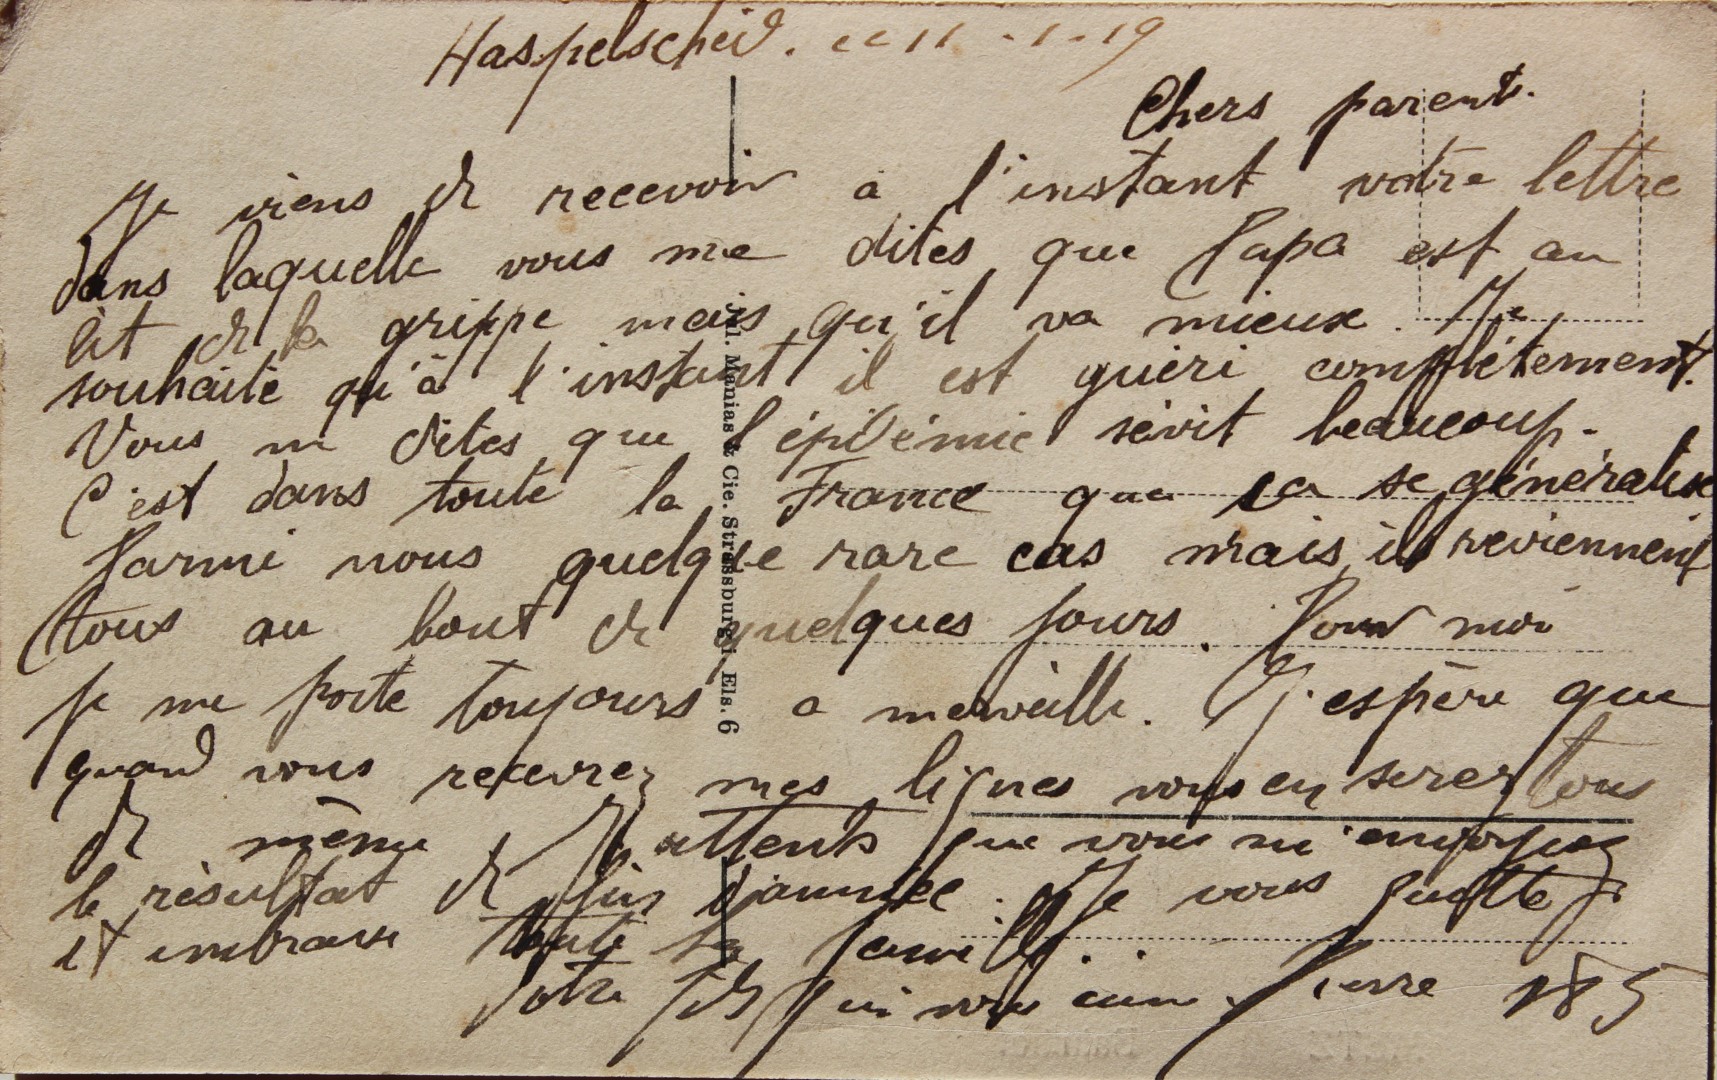 Haspelscheid. le 11-1-19
Chers parents.
Je viens de recevoir à l'instant votre lettre
dans laquelle vous me dites que Papa est au
lit de la grippe mais qu'il va mieux. Je
souhaite qu'à l'instant il est guéri complètement.
Vous me dites que l'épidémie sévit beaucoup.
C'est dans toute la France que ça se généralise
Parmi nous quelque rare cas mais ils reviennent
tous au bout de quelques jours. Pour moi
je me porte toujours a merveille. J'espère que
quand vous recevrez mes lignes vous en serez tous
de même. J'attends que vous m'envoyiez
le résultat de fin d'année. Je vous quitte
et embrasse toute la famille..
Votre fils qui vous aime. Pierre
Jul. Manias & Cie. Strassburg i. Els. 6